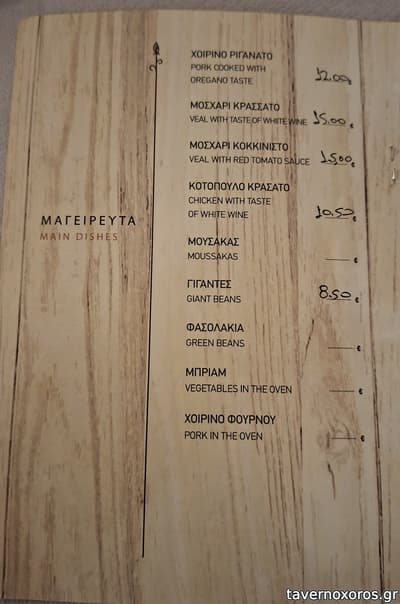 ΜΑΓΕΙΡΕΥΤΑ
MAIN DISHES
ΧΟΙΡΙΝΟ ΡΙΓΑΝΑΤΟ
PORK COOKED WITH
OREGANO TASTE 12.00
ΜΟΣΧΑΡΙ ΚΡΑΣΣΑΤΟ
VEAL WITH TASTE OF WHITE WINE 15.00 €
ΜΟΣΧΑΡΙ ΚΟΚΚΙΝΙΣΤΟ
VEAL WITH RED TOMATO SAUCE 15.00 €
ΚΟΤΟΠΟΥΛΟ ΚΡΑΣΑΤΟ
CHICKEN WITH TASTE
OF WHITE WINE 10.50 €
ΜΟΥΣΑΚΑΣ
MOUSSAKAS €
ΓΙΓΑΝΤΕΣ
GIANT BEANS 8.50 €
ΦΑΣΟΛΑΚΙΑ
GREEN BEANS €
ΜΠΡΙΑΜ
VEGETABLES IN THE OVEN €
ΧΟΙΡΙΝΟ ΦΟΥΡΝΟΥ
PORK IN THE OVEN €
tavernoxoros.gr